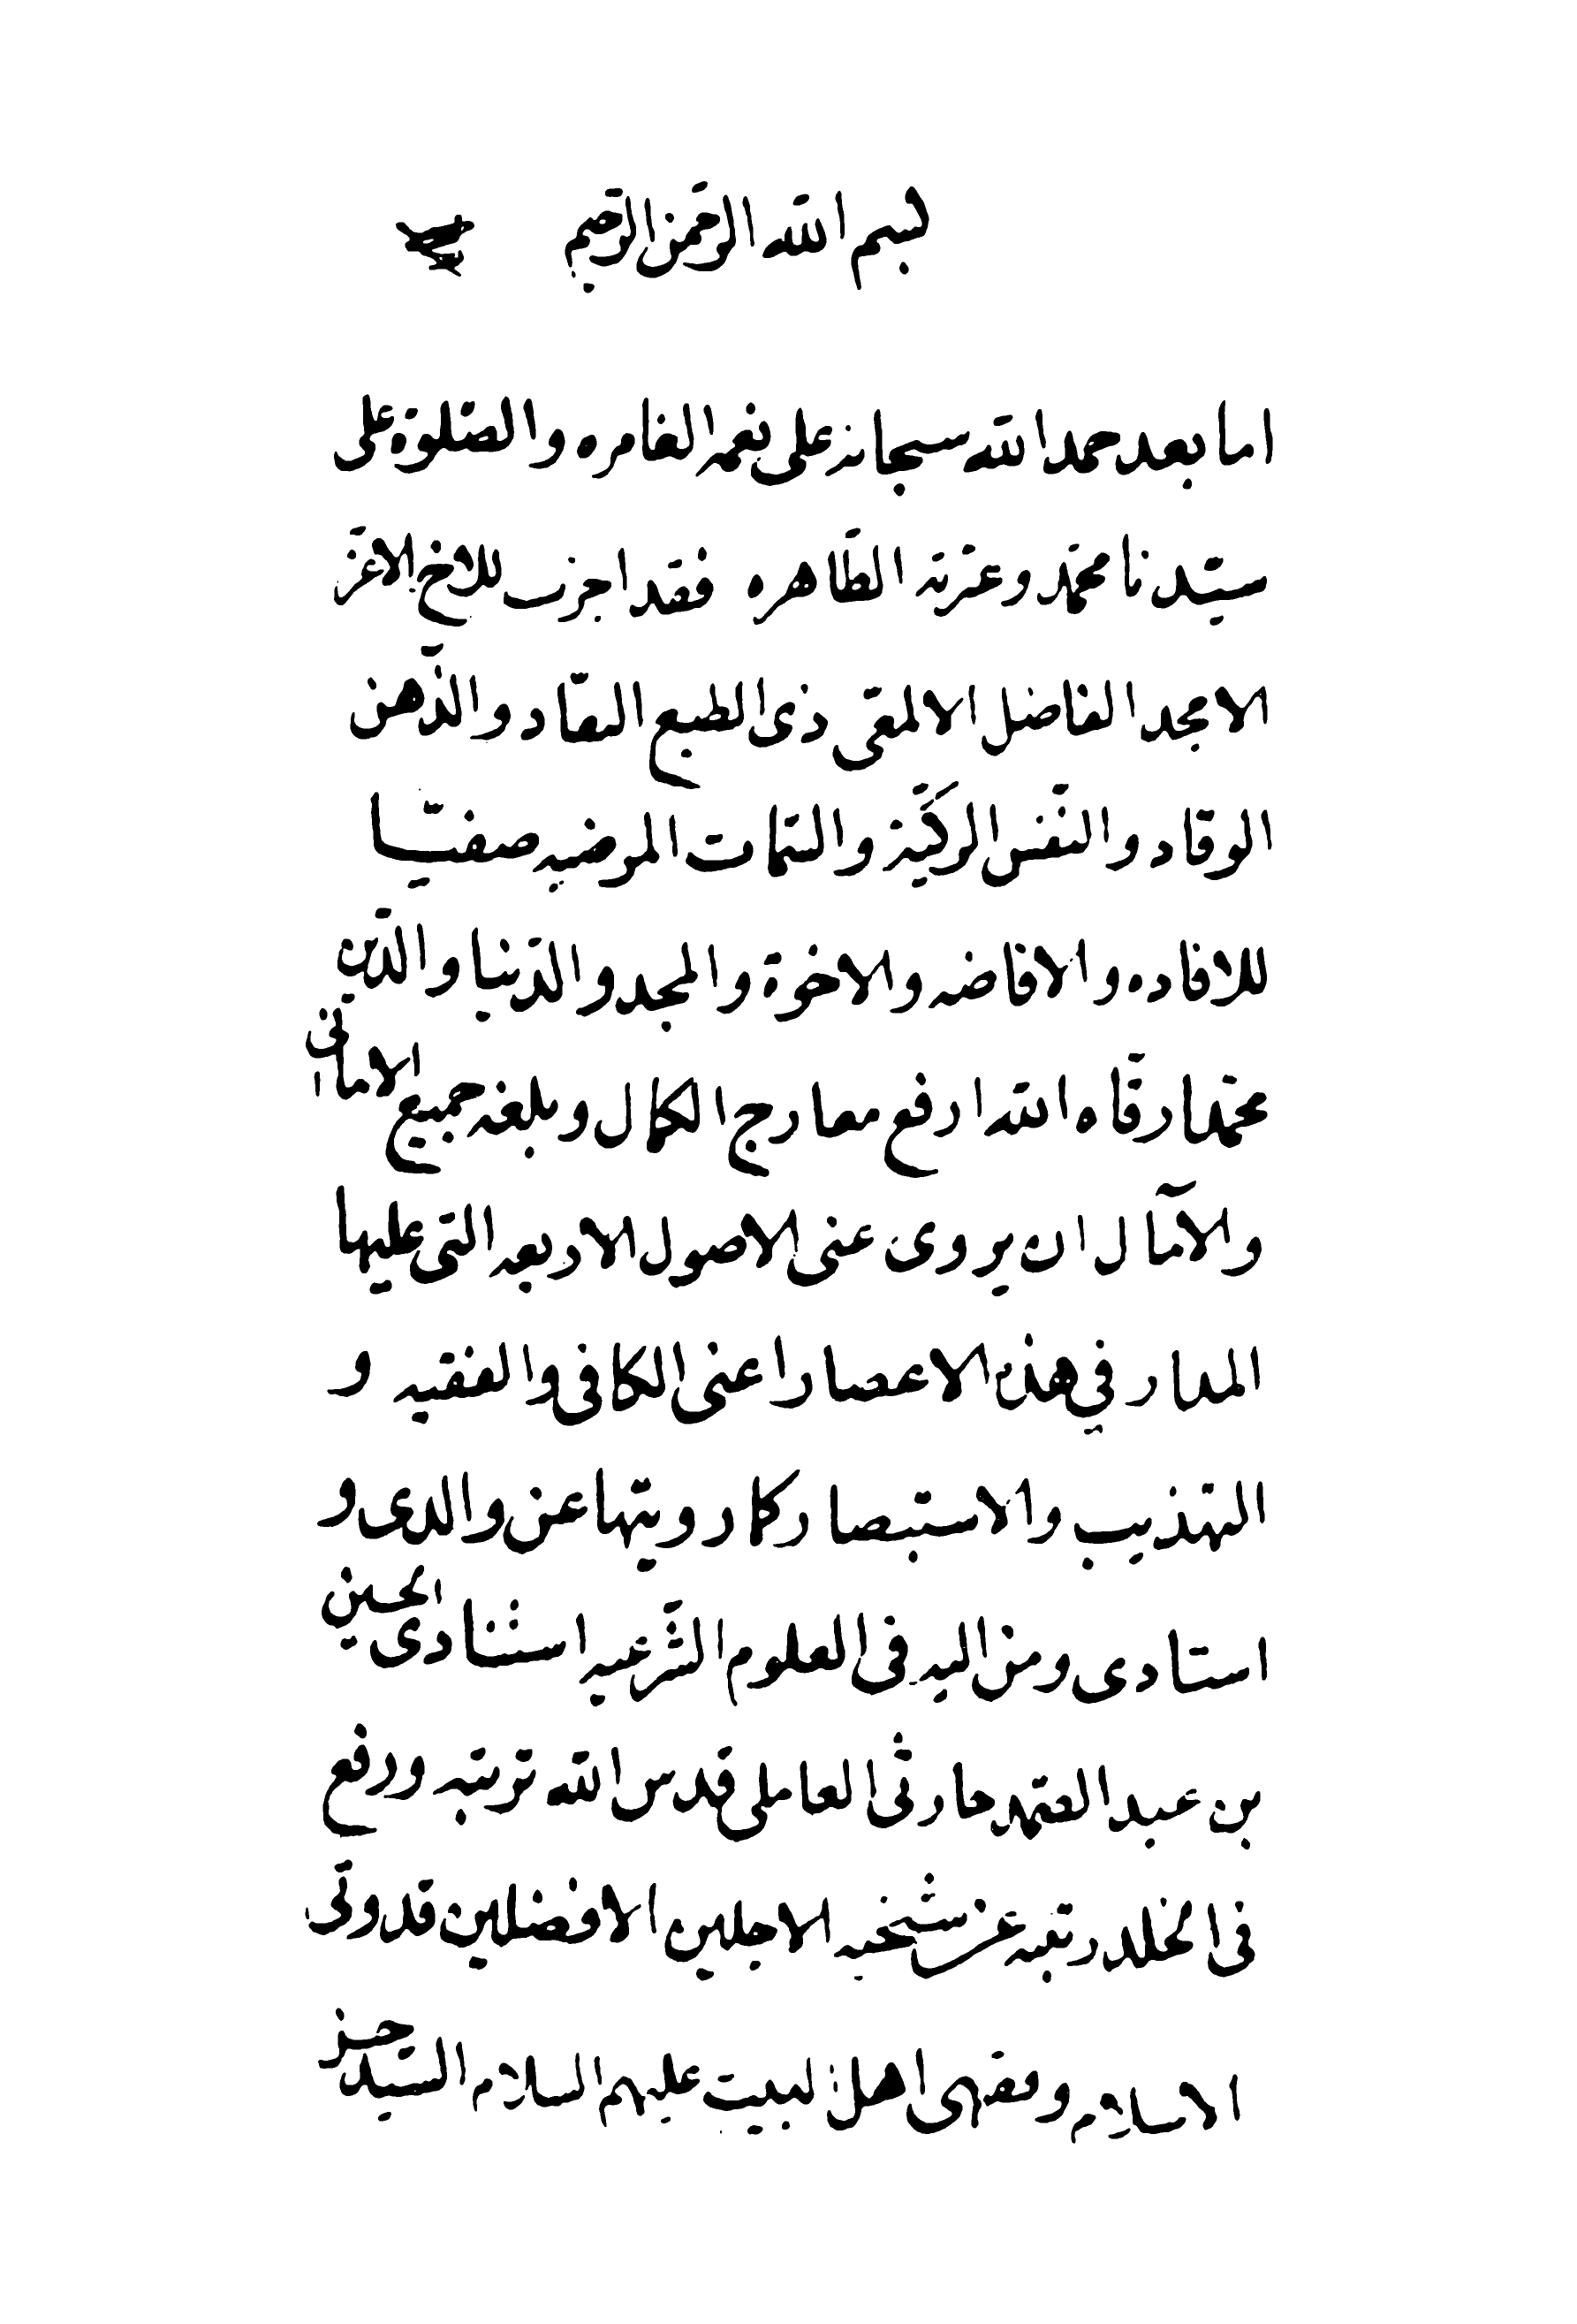 بسم الله الرحمن الرحيم
اما بعد حمد الله سبحانه على نعمه الغامره والصّلوة على
سيّدنا محمّد وعترته الطّاهره فقد اجزت للاخ الاعزّ
الامجد الفاضل الالمعى ذى الطبع النقّاد والذّهن
الوقاد والنّفس الزكيّة والسّمات المرضيه صفيّا
للافاده والافاضه والاخوة والمجد والدّنيا والدّين
محمّدا رقّاه الله ارفع معارج الكمال وبلغه جميع الامانىّ
والآمال ان يروى عنى الاصول الاربعه التى عليها
المدار في هذه الاعصار اعنى الكافى والفقيه و
التهذيب والاستبصار كما رويتها عن والدى و
استادى ومن اليه فى العلوم الشّرعيه استنادى الحسين
بن عبد الصّمد حارثى العاملى قدس الله تربته ورفع
فى الخلد رتبته عن شيخيه الاجلين الافضلين قدوتى
الاسلام وفقهى اهل البيت عليهم السلام السّيد حسن